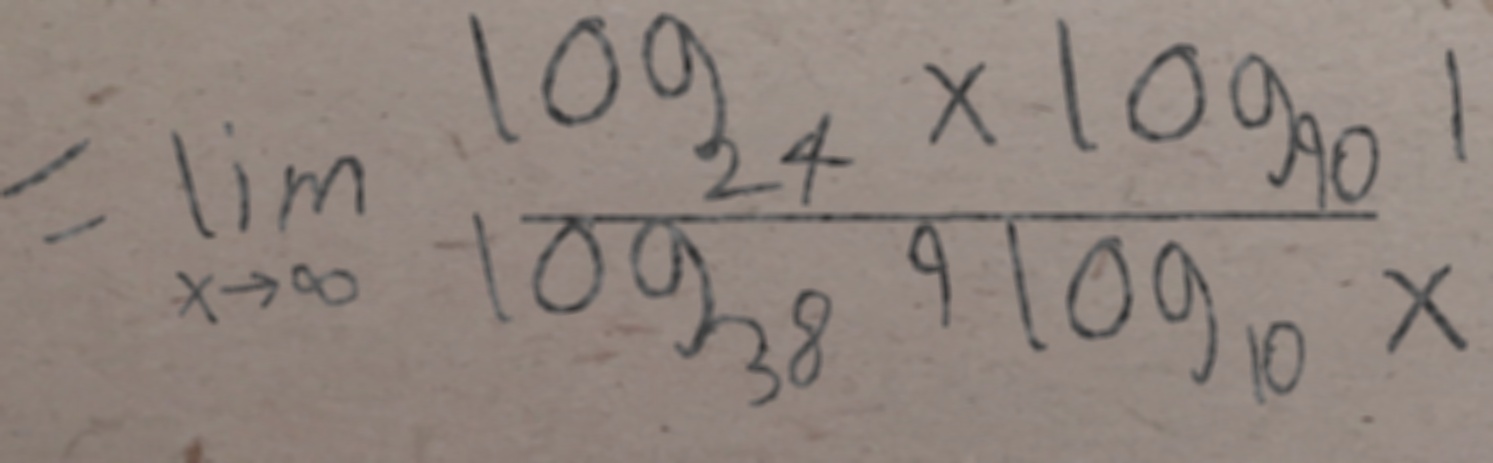 = lim x→∞ log₂₄ x log₉₀ 1 / log₃₈ 9 log₁₀ x